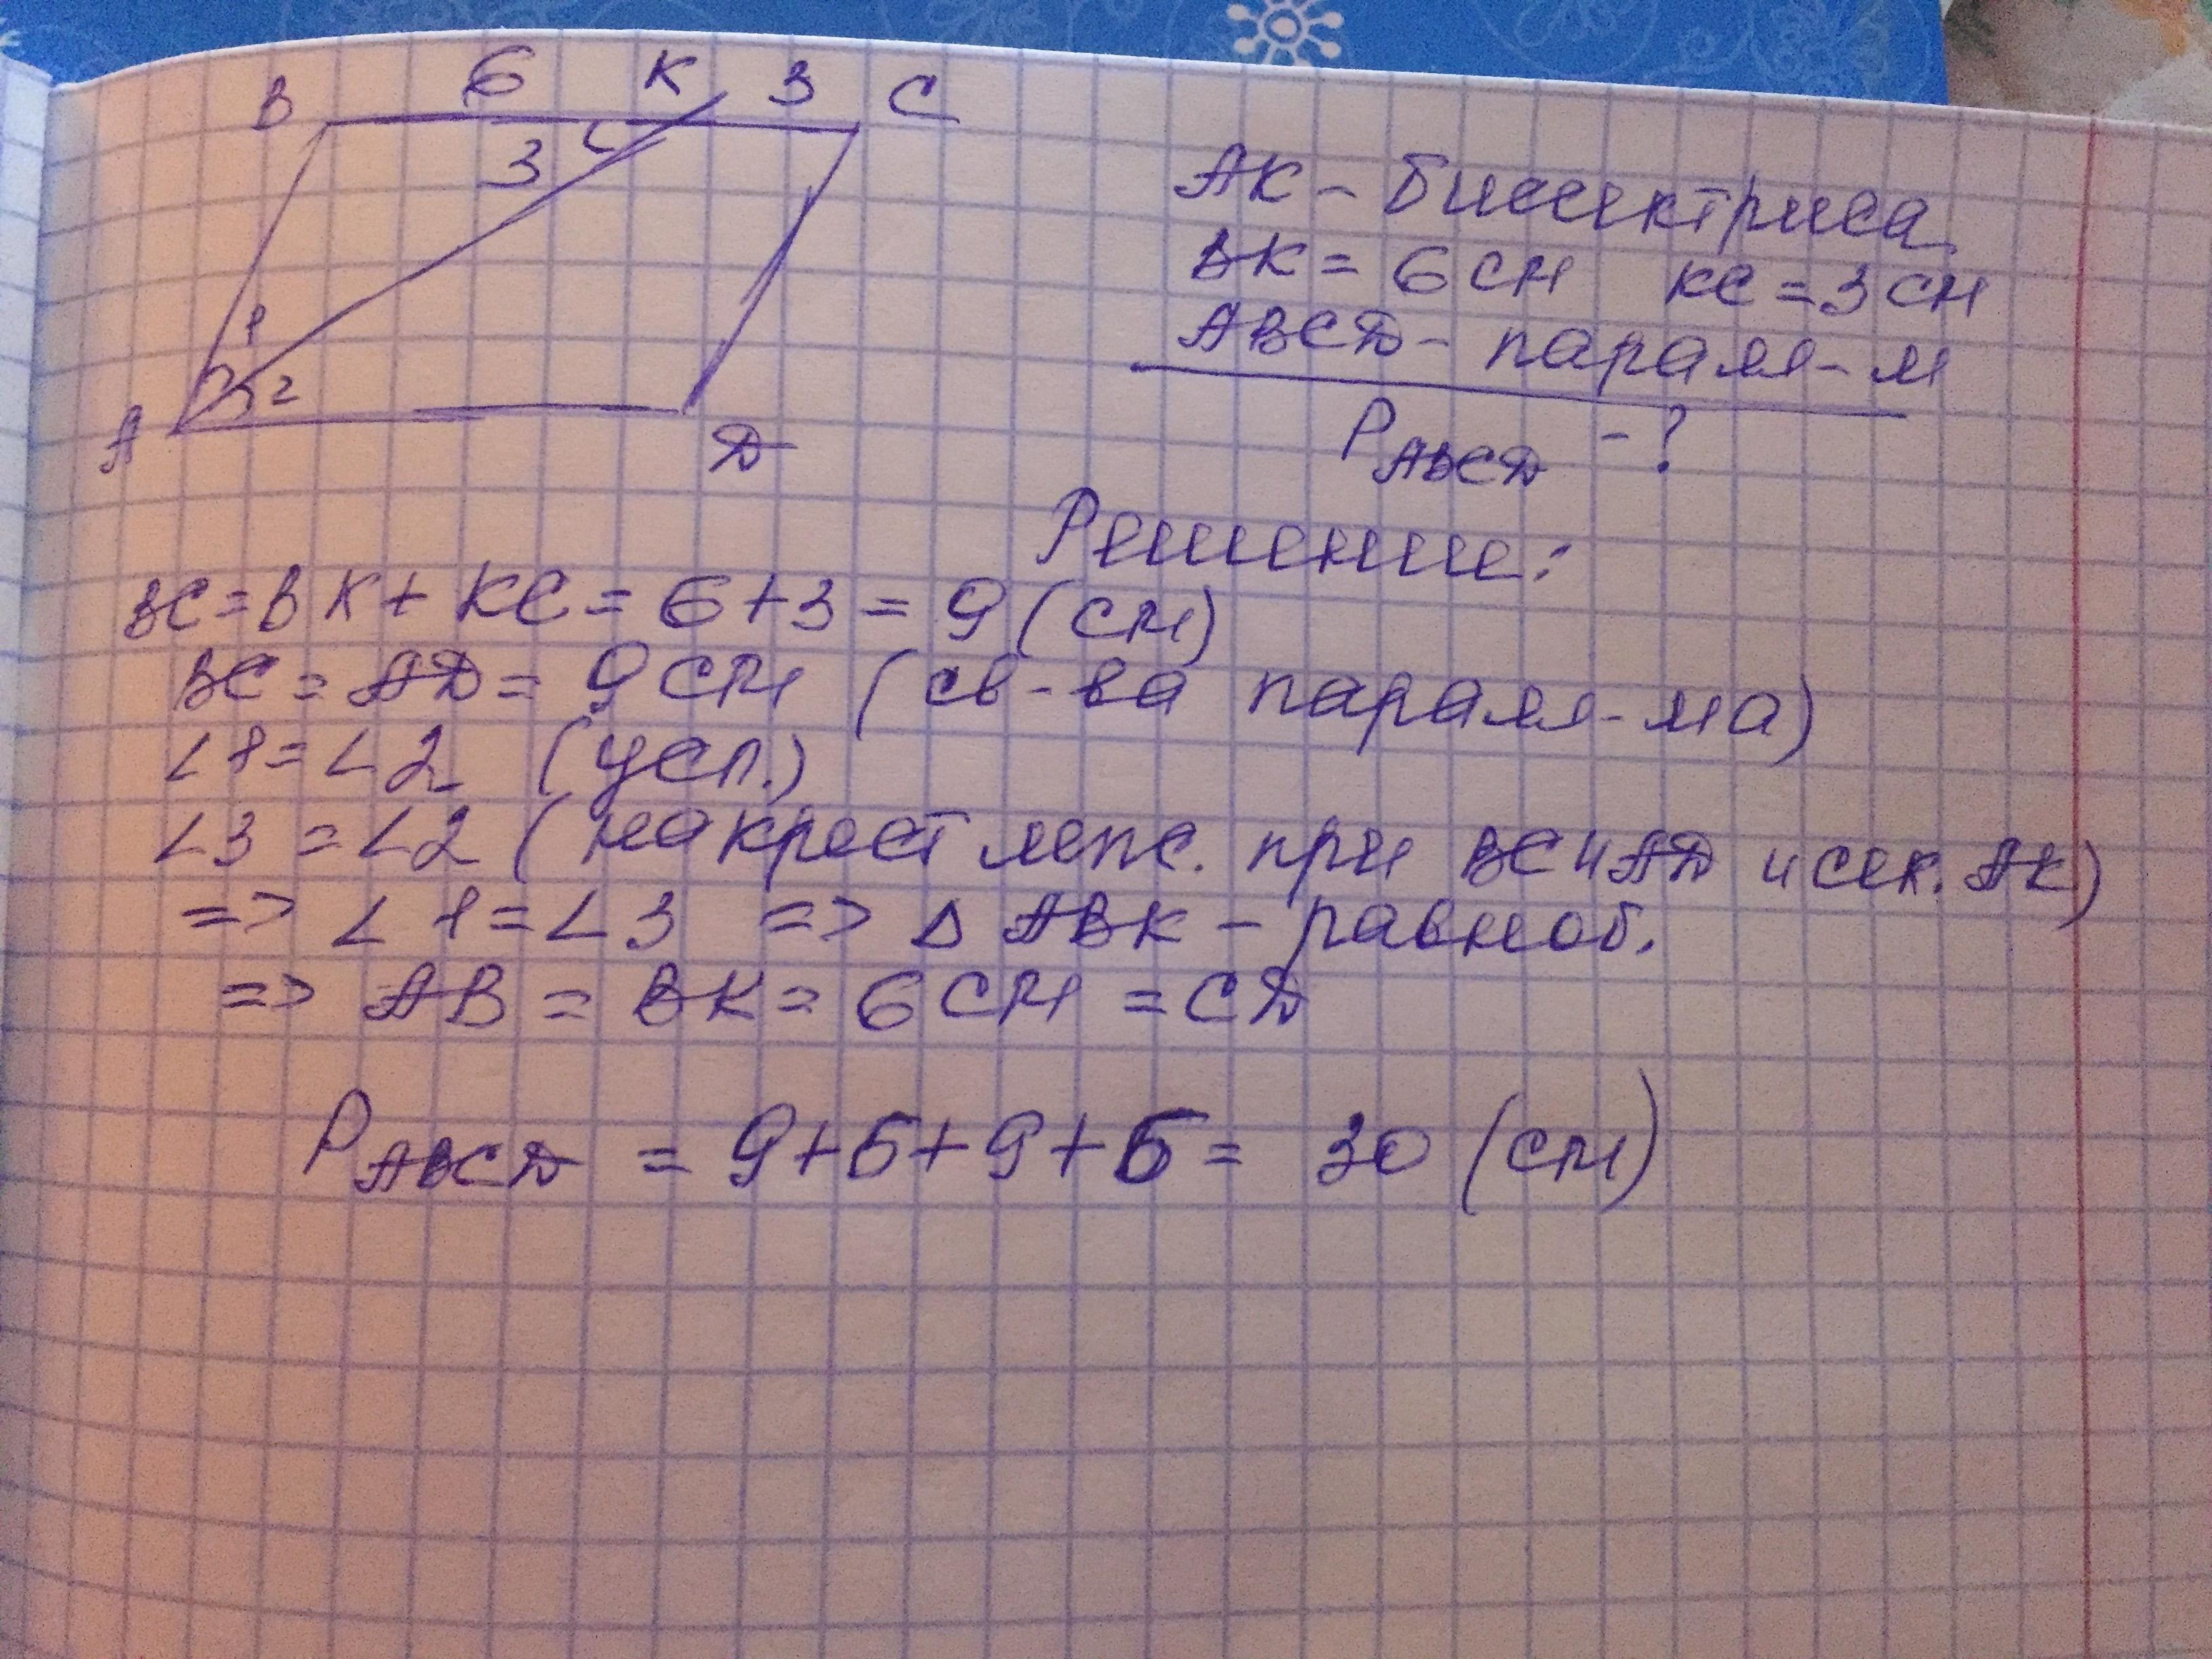 B 6 K 3 C
3
1
2
A D
AK - биссектриса
BK = 6 см KC = 3 см
ABCD - паралл-м
P ABCD - ?
Решение:
BC = BK + KC = 6 + 3 = 9 (см)
BC = AD = 9 см (св-ва паралл-ма)
∠1 = ∠2 (усл.)
∠3 = ∠2 (накрест леж. при BC и AD и сек. AK)
=> ∠1 = ∠3 => Δ ABK - равноб.
=> AB = BK = 6 см = CD
P ABCD = 9 + 6 + 9 + 6 = 30 (см)